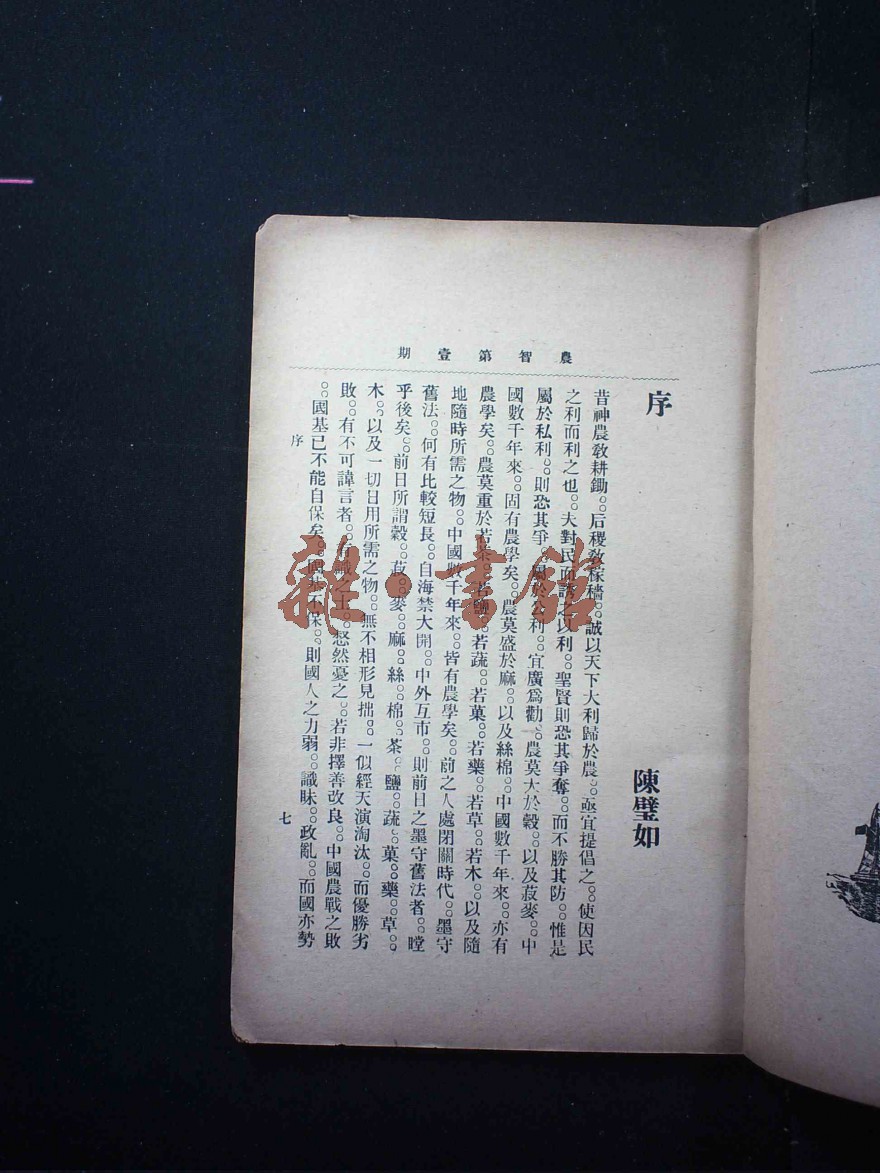 農智第壹期
序
陳璧如
昔神農教耕鋤。。后稷教稼穡。。誠以天下大利歸於農。。亟宜提倡之。。使因民
之利而利之也。。夫對民而語之以利。。聖賢則恐其爭奪。。而不勝其防。。惟是
屬於私利。。則恐其爭。。屬於公利。。宜廣爲勸。。農莫大於穀。。以及菽麥。。中
國數千年來。。固有農學矣。。農莫盛於麻。。以及絲棉。。中國數千年來。。亦有
農學矣。。農莫重於若茶。。若鹽。。若蔬。。若菓。。若藥。。若草。。若木。。以及隨
地隨時所需之物。。中國數千年來。。皆有農學矣。。前之人處閉關時代。。墨守
舊法。。何有比較短長。。自海禁大開。。中外互市。。則前日之墨守舊法者。。瞠
乎後矣。。前日所謂穀。。菽。。麥。。麻。。絲。。棉。。茶。。鹽。。蔬。。菓。。藥。。草。。
木。。以及一切日用所需之物。。無不相形見拙。。一似經天演淘汰。。而優勝劣
敗。。有不可諱言者。。有識之士。。惄然憂之。。若非擇善改良。。中國農戰之敗
。。國基已不能自保矣。。國基不保。。則國人之力弱。。識昧。。政亂。。而國亦勢
序
七
雜·書館